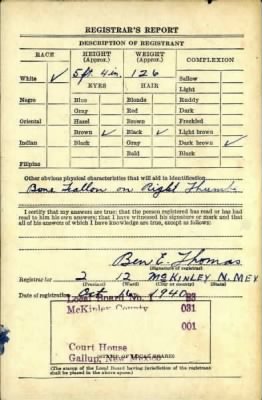 REGISTRAR'S REPORT
DESCRIPTION OF REGISTRANT
RACE HEIGHT (Approx.) WEIGHT (Approx.) COMPLEXION
White ✓ 5 ft. 4 in. 126 Sallow
EYES HAIR Light
Negro Blue Blonde Ruddy
Gray Red Dark
Oriental Hazel Brown Freckled
Brown ✓ Black ✓ Light brown
Indian Black Gray Dark brown ✓
Bald Black
Filipino
Other obvious physical characteristics that will aid in identification
Bone on Right Thumb
I certify that my answers are true; that the person registered has read or has had
read to him his own answers; that I have witnessed his signature or mark and that
all of his answers of which I have knowledge are true, except as follows:
Ben E. Thomas
(Signature of registrar)
Registrar for 2 12 McKINLEY N. MEX
(Precinct) (Ward) (City or county) (State)
Date of registration Oct 16 1940
Local Board No. 1 93
McKinley County 031
001
Court House
Gallup, New Mexico
(STAMP OF LOCAL BOARD)
(The stamp of the Local Board having jurisdiction of the registrant
shall be placed in the above space.)